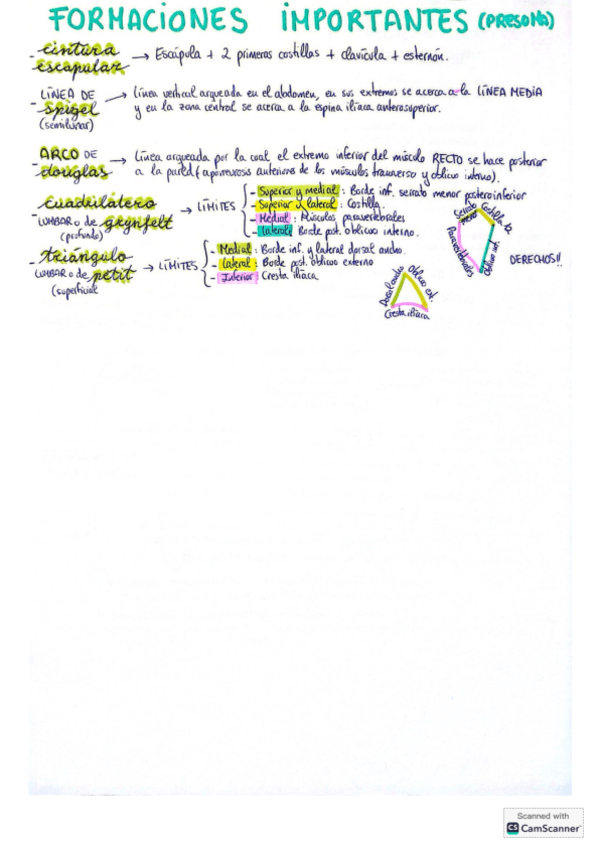 FORMACIONES IMPORTANTES (PRESOMA)
- cintura escapular → Escápula + 2 primeras costillas + clavícula + esternón.
- LÍNEA DE spigel (semilunar) → Línea vertical arqueada en el abdomen, en sus extremos se acerca a la LÍNEA MEDIA
y en la zona central se acerca a la espina iliaca anterosuperior.
- ARCO DE douglas → Línea arqueada por la cual el extremo inferior del músculo RECTO se hace posterior
a la pared (aponeurosis anteriores de los músculos transverso y oblicuo interno).
- cuadrilátero LUMBAR o de grynfelt (profundo) → LÍMITES
- Superior y medial: Borde inf. serrato menor posteroinferior
- Superior y lateral: Costilla.
- Medial: Músculos paravertebrales
- Lateral: Borde post. oblicuo interno.
Serrato menor
Costilla 12
Paravertebrales
Oblicuo int.
DERECHOS!!
- triángulo LUMBAR o de petit (superficial → LÍMITES
- Medial: Borde inf. y lateral dorsal ancho.
- Lateral: Borde post. oblicuo externo
- Inferior: Cresta ilíaca.
Dorsal ancho
Oblicuo ext.
Cresta ilíaca
Scanned with
CS CamScanner